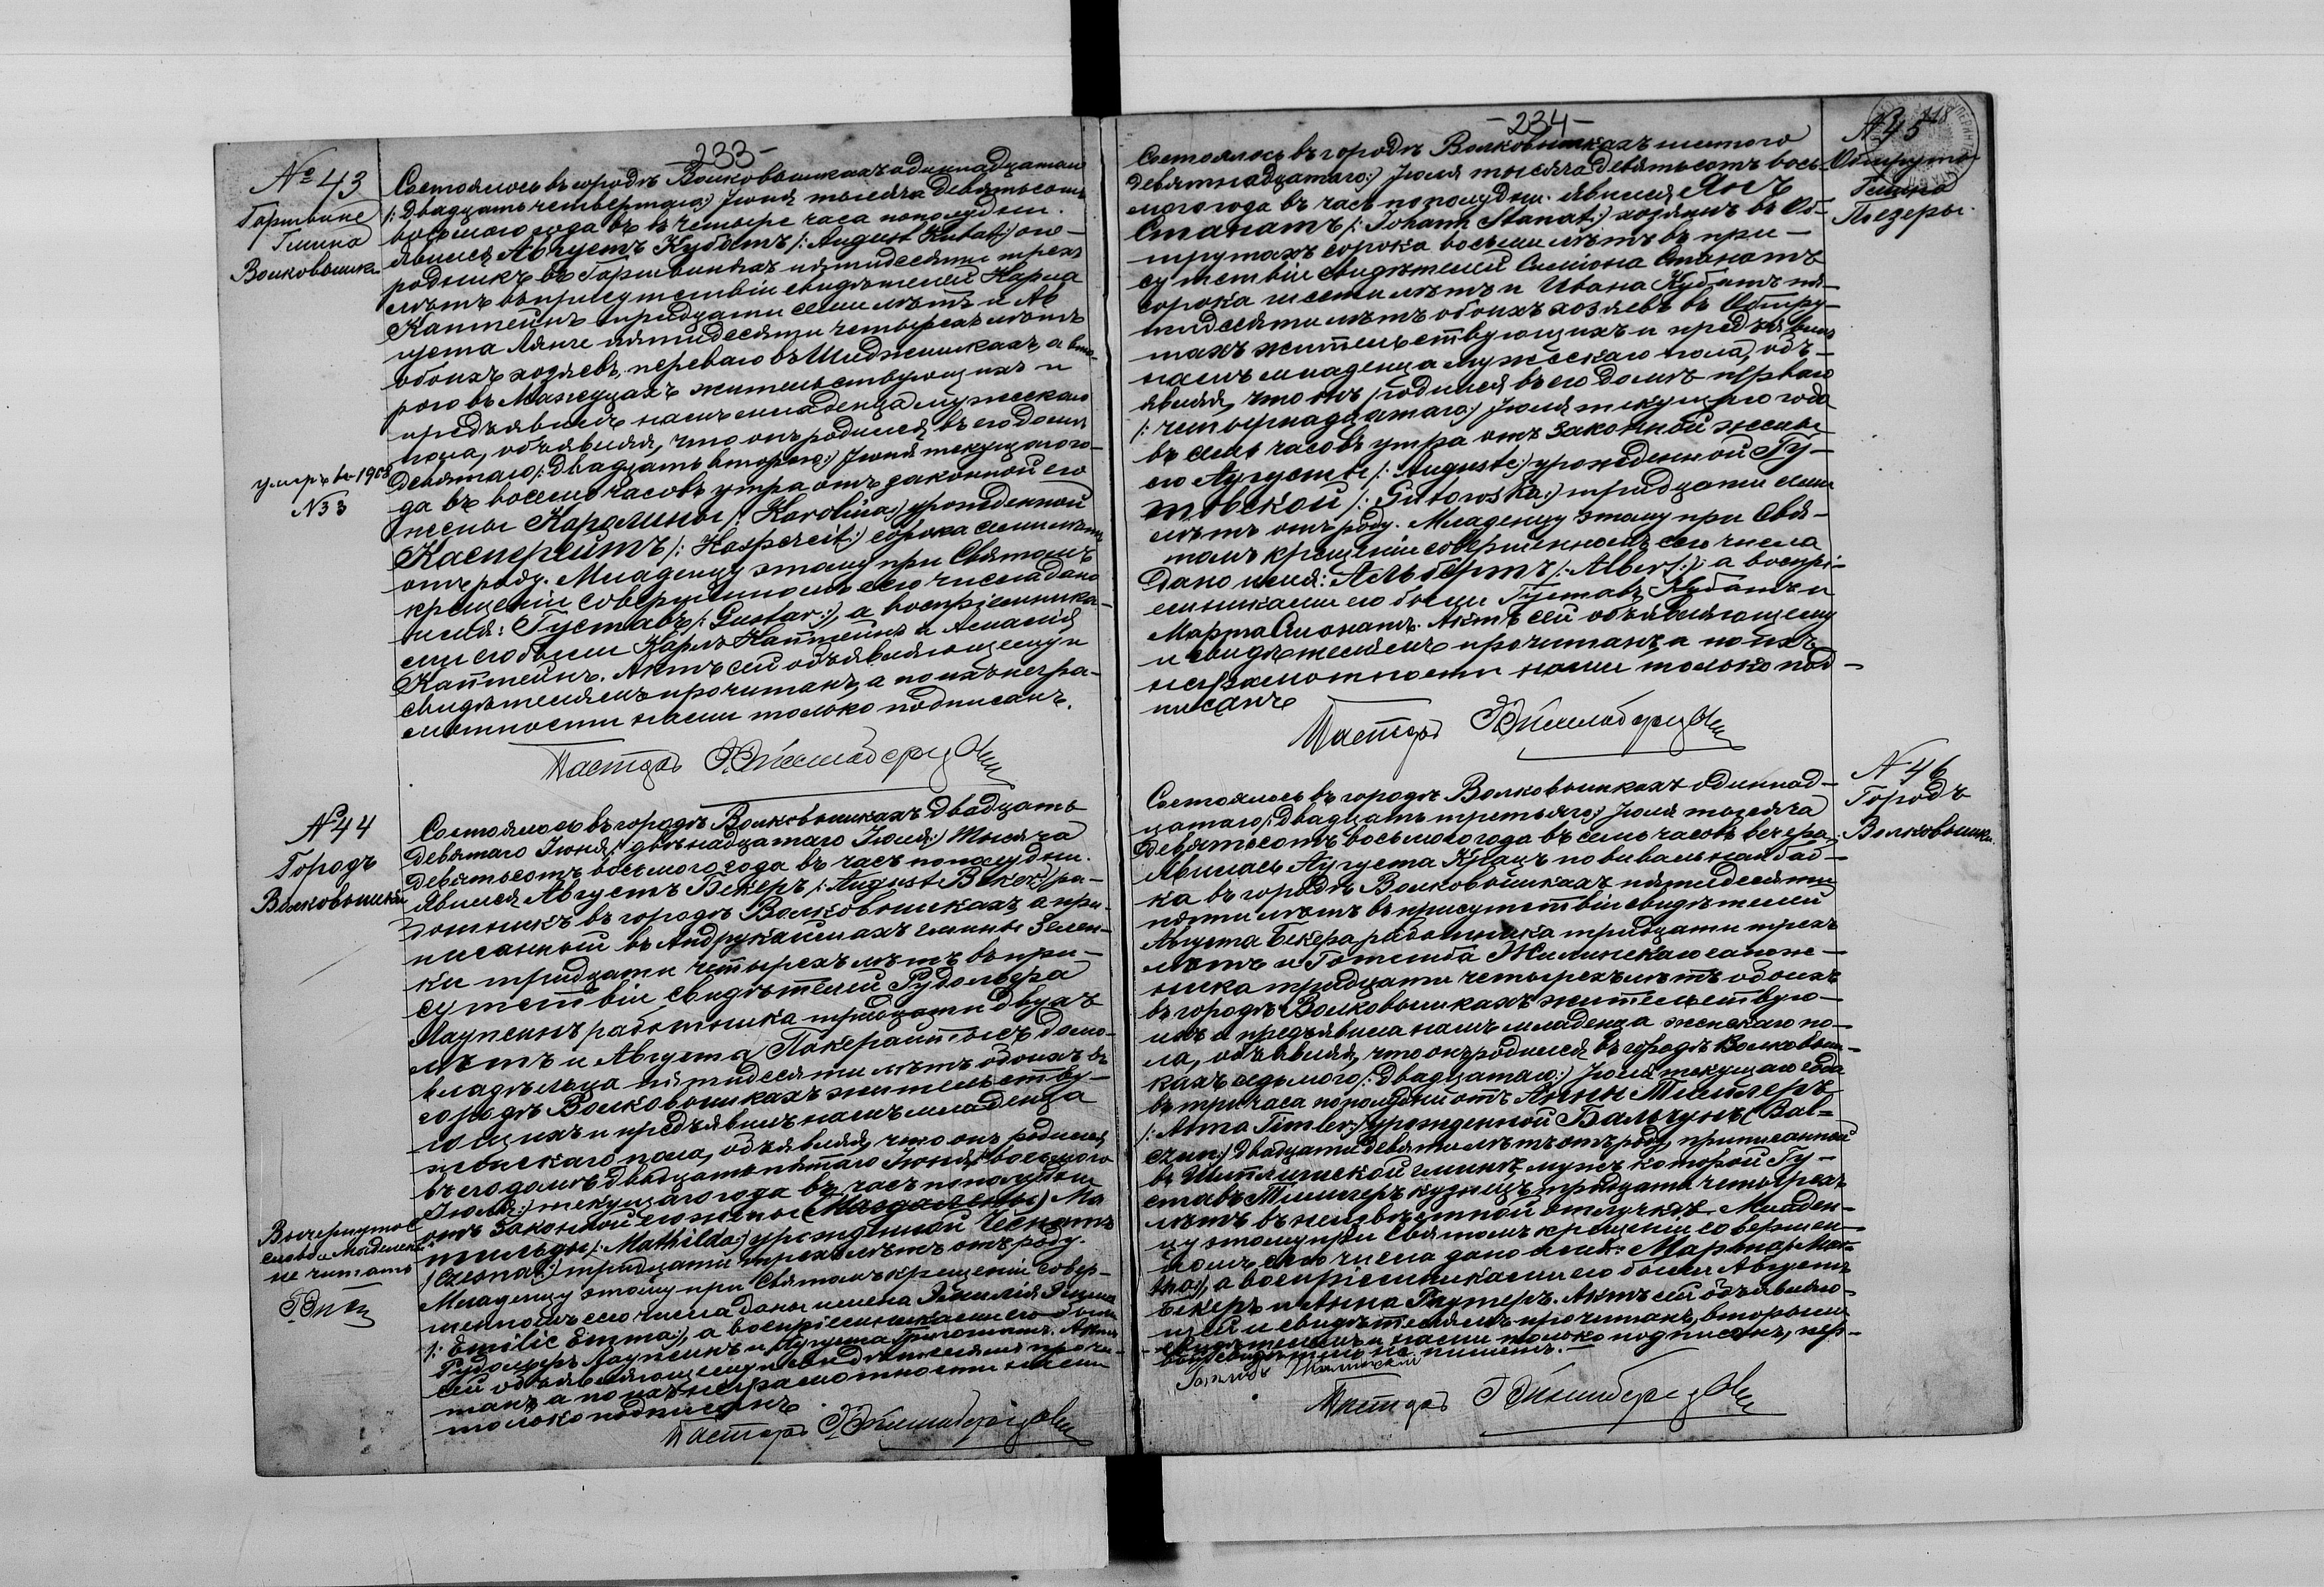 -233-
№ 43
Гаршвине
Гмина
Волковышки
Состоялось въ городѣ Волковышкахъ одиннадцатаго
/: Двадцать четвертаго :/ Іюня тысяча девятьсотъ
восьмого года въ въ четыре часа пополудни.
Явился Августъ Кубатъ /: August Kubat :/ ого-
родникъ въ Гаршвиняхъ пятидесяти трехъ
лѣтъ въ присутствіи свидѣтелей Карла
Каптейнъ тридцати семи лѣтъ и Ав
густа Лянге пятидесяти четырехъ лѣтъ
обоихъ хозяевъ, перваго въ Шиджишкахъ, а вто-
рого въ Мажуцахъ жительствующихъ и
предъявилъ намъ младенца мужескаго
пола, объявляя, что онъ родился въ его домѣ
девятаго /: Двадцать второго :/ Іюня текущаго го-
да въ восемь часовъ утра отъ законной его
жены Каролины /: Karolina :/ урожденной
Касперейтъ /: Kaspereit :/ сорока семи лѣтъ
отъ роду. Младенцу этому при Святомъ
крещеніи совершенномъ сего числа дано
имя: Густавъ /: Gustav :/, а воспріемника-
ми его были Карлъ Каптейнъ и Амалія
Каптейнъ. Актъ сей объявляющему и
свидѣтелямъ прочитанъ, а по ихъ негра-
мотности нами только подписанъ.
Пасторъ
умеръ въ 1908
N 33
№ 44
Городъ
Волковышки
Состоялось въ городѣ Волковышкахъ Двадцать
девятаго Іюня /: двѣнадцатаго Іюля :/ Тысяча
девятьсотъ восьмого года въ часъ пополудни.
Явился Августъ Бекеръ /: August Beker :/ ра-
ботникъ въ городѣ Волковышкахъ, а при-
писанный въ Андрукайтмахъ гмины Зелен-
ки тридцати четырехъ лѣтъ въ при-
сутствіи свидѣтелей Рудольфа
Лаупинъ работника тридцати двухъ
лѣтъ и Августа Пакерайтысъ домо-
владѣльца пятидесяти лѣтъ обоихъ въ
городѣ Волковышкахъ жительству-
ющихъ и предъявилъ намъ младенца
женскаго пола, объявляя, что онъ родился
въ его домѣ Двадцать пятаго Іюня /: восьмого
Іюля :/ текущаго года въ часъ пополудни
отъ законной его жены (Магдалены) Ма
тильды /: Mathilda :/ урожденной Чеснатъ
/: Czesnat :/ тридцати трехъ лѣтъ отъ роду.
Младенцу этому при Святомъ крещеніи совер-
шенномъ сего числа даны имена Эмилія Эмма
/: Emilie Emma :/, а воспріемниками его были
Рудольфъ Лаупинъ и Августа Актъ
сей объявляющему и свидѣтелямъ прочи-
танъ, а по ихъ неграмотности нами
только подписанъ.
Пасторъ
Вычеркнутое
слово Магдалены
не читать
-234-
№ 45
118
Обшруты
Гмина
Плезеры.
Состоялось въ городѣ Волковышкахъ шестого
/: Девятнадцатаго :/ Іюля тысяча девятьсотъ вось-
мого года въ часъ пополудни. Явился Янъ
Станатъ /: Johann Stanat :/ хозяинъ въ Об-
шрутахъ сорока восьми лѣтъ въ при-
сутствіи свидѣтелей Симіона Станатъ
сорока шести лѣтъ и Ивана Кубатъ пя-
тидесяти лѣтъ обоихъ хозяевъ въ Обшру-
тахъ жительствующихъ и предъявилъ
намъ младенца мужескаго пола, объ-
являя, что онъ родился въ его домѣ перваго
/: четырнадцатаго :/ Іюля текущаго года
въ семь часовъ утра отъ законной жены
его Августы /: Auguste :/ урожденной Гу-
товской /: Gutowska :/ тридцати семи
лѣтъ отъ роду. Младенцу этому при Свя-
томъ крещеніи совершенномъ сего числа
дано имя: Альбертъ /: Albert :/, а воспрі-
емниками его были Густавъ Кубатъ и
Марта Станатъ. Актъ сей объявляющему
и свидѣтелямъ прочитанъ, а по ихъ
неграмотности нами только под-
писанъ
Пасторъ
№ 46
Городъ
Волковышки.
Состоялось въ городѣ Волковышкахъ одиннад-
цатаго /: Двадцать третьяго :/ Іюля тысяча
девятьсотъ восьмого года въ семь часовъ вечера.
Явилась Августа Крацъ повивальная баб-
ка въ городѣ Волковышкахъ пятидесяти
пяти лѣтъ въ присутствіи свидѣтелей
Августа Бекера работника тридцати трехъ
лѣтъ и Готлиба Жилинскаго сапож-
ника тридцати четырехъ лѣтъ обоихъ
въ городѣ Волковышкахъ жительствую-
ихъ и предъявила намъ младенца женскаго по-
ла, объявляя, что онъ родился въ городѣ Волковыш-
кахъ седьмого /: Двадцатаго :/ Іюля текущаго года
въ три часа пополудни отъ Анны Тимлеръ
/: Anna Timler :/ урожденной Бальчунъ (Bal-
czun :/ двадцати девяти лѣтъ отъ роду, приписанной
въ гминѣ, мужъ которой Гу-
ставъ Тимлеръ кузнецъ тридцати четырехъ
лѣтъ въ неизвѣстной отлучкѣ. Младен-
цу этому при Святомъ крещеніи совершен-
номъ сего числа дано имя: Марта /: Mar-
tha :/, а воспріемниками его были Августъ
Бекеръ и Анна Гаутеръ. Актъ сей объявляю-
щей и свидѣтелямъ прочитанъ, вторымъ
свидѣтелемъ и нами только подписанъ, пер-
вый свидѣтель не пишетъ.
Готлибъ Жилинский
Пасторъ